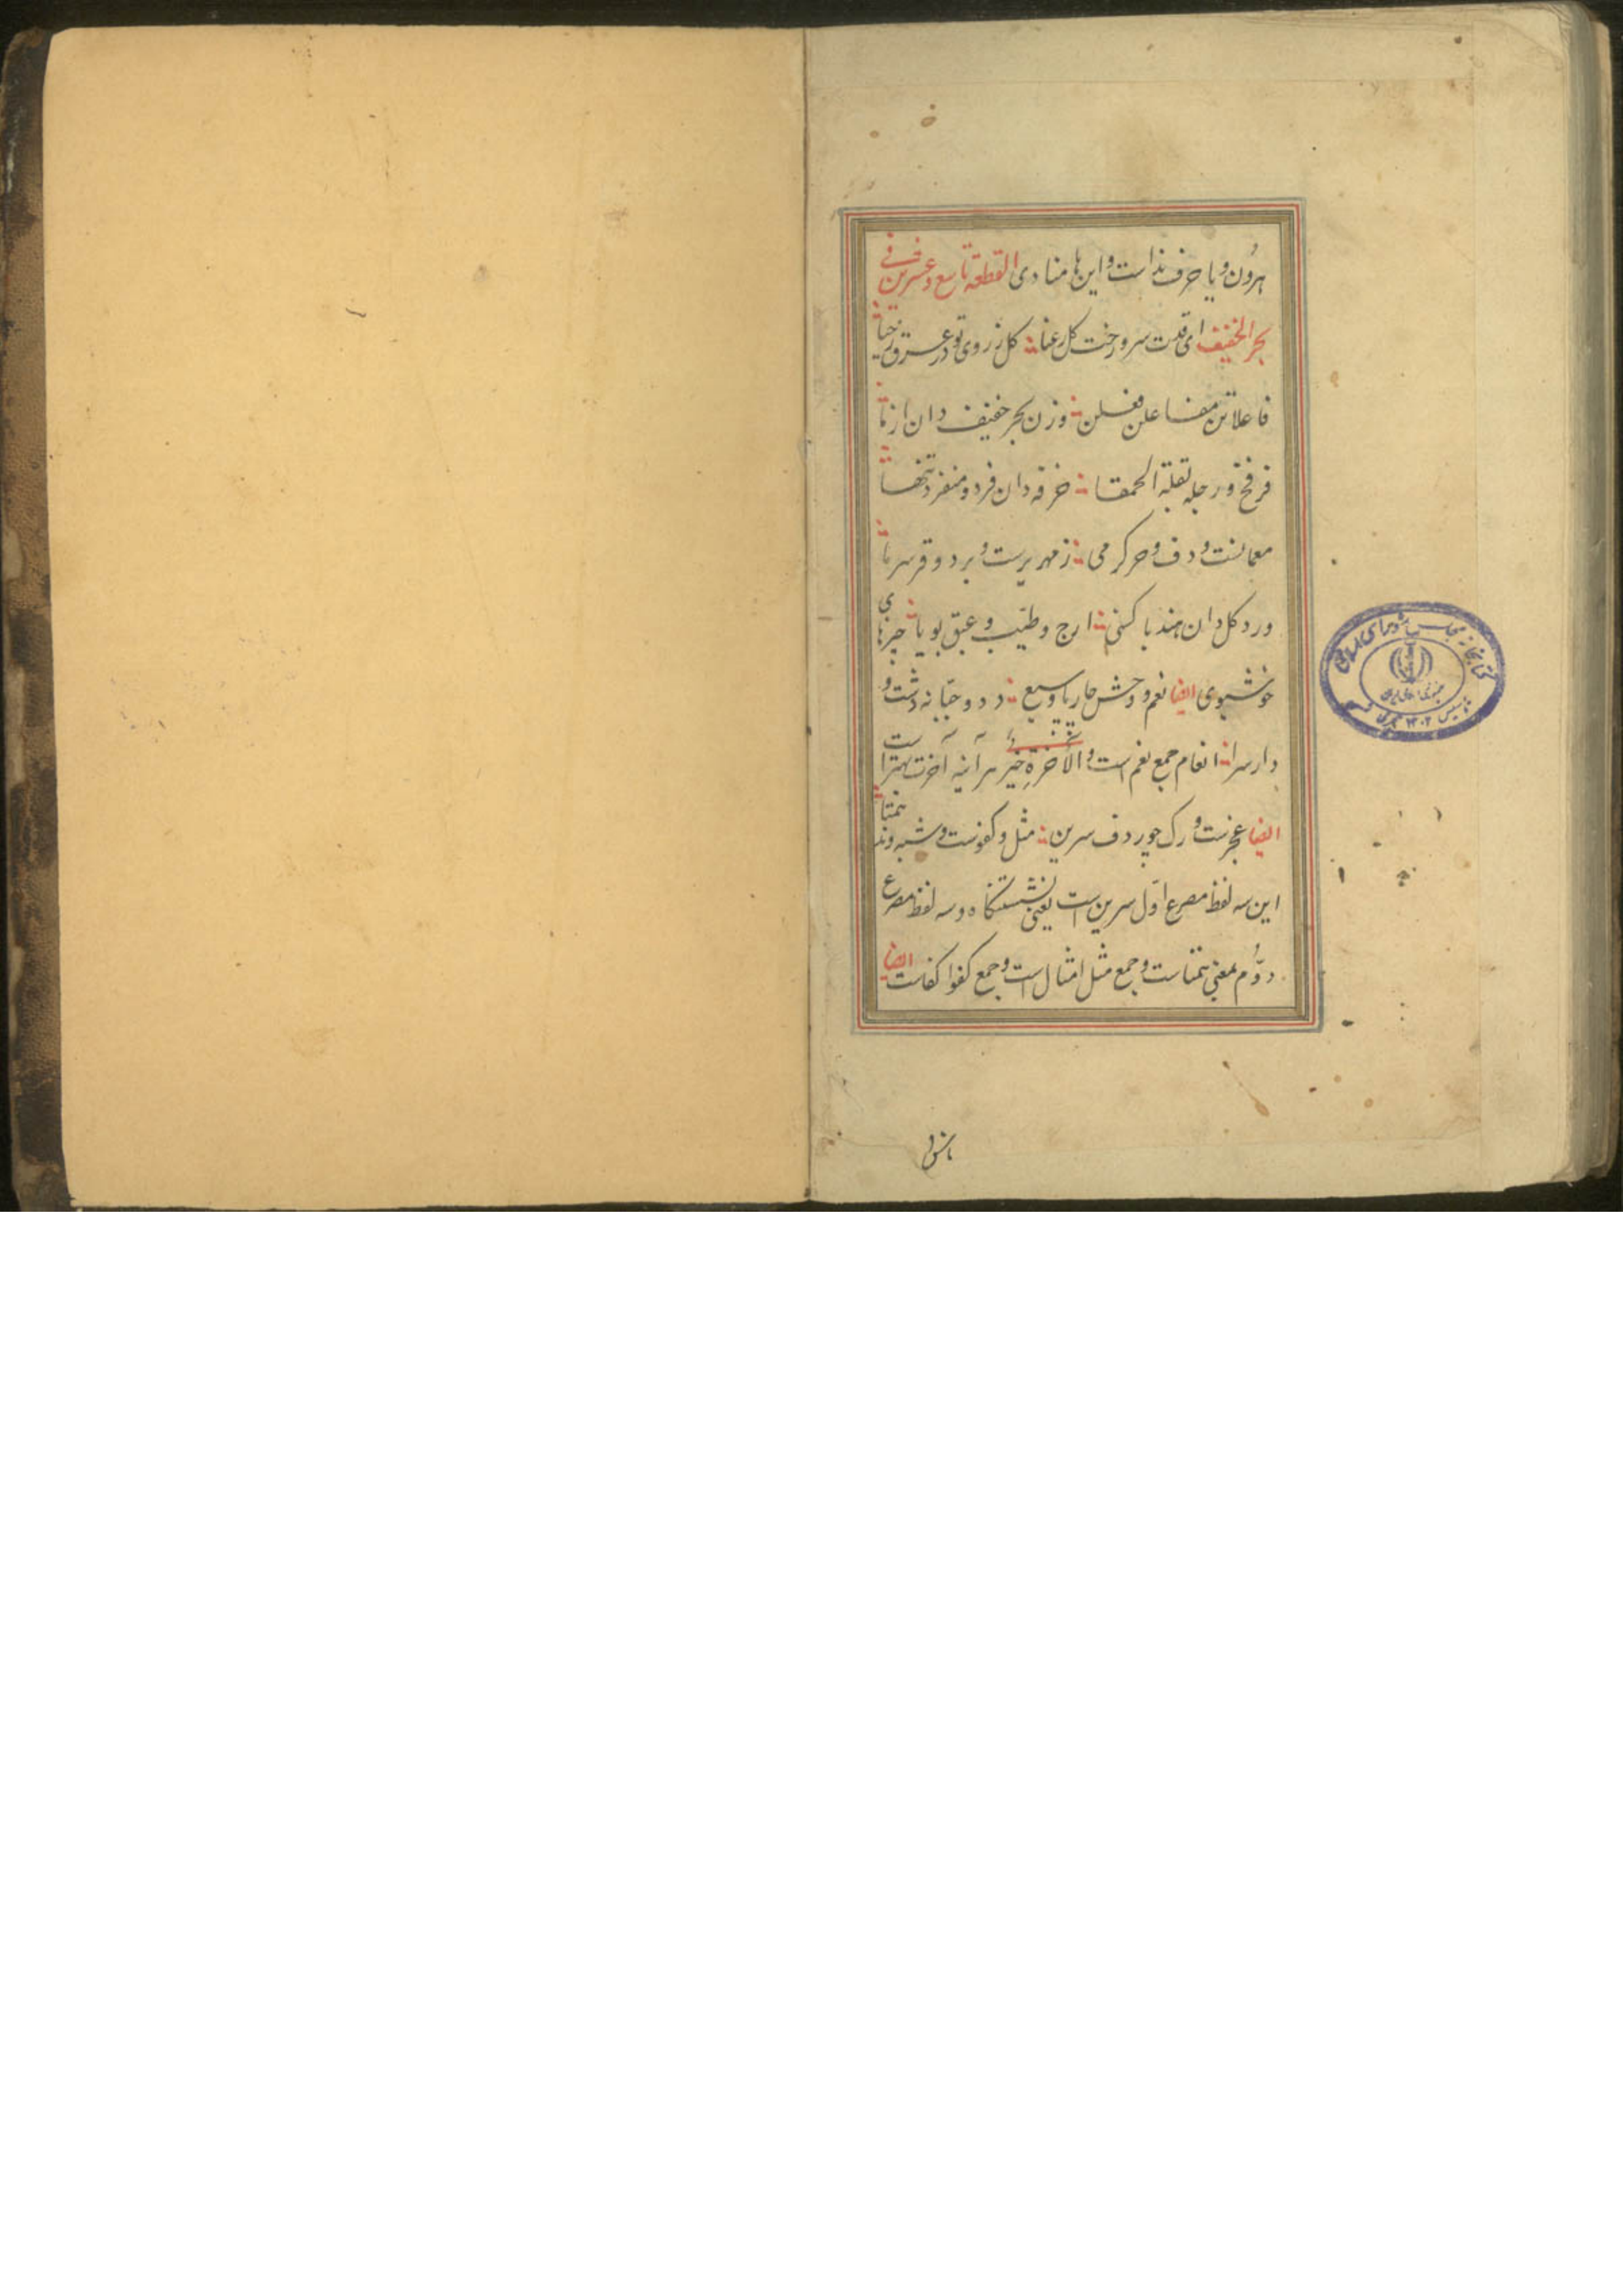 برون و یا حرف نداست و این ها منادی القطعه تاسع و عشرین فی
بحر الخفیف ای قدت سرو رخت کل رعنا کل ز روی تو در عرق
فاعلاتن مفاعلن فعلن وزن بحر خفیف دان از ما
فرفخ و رجله بقلة الحمقا خرفه دان فرد و منفرد تنها
معمانست و دف و حر کرمی زمهریرست و برد و قر سرما
ورد کل دان هندبا کسنی ارج و طیب و عبق بویا چیزهای
خوشبوی ایضا نعم و وحش چارپا و سبع دد و جبانه دشت و
دار سرا انعام جمع نعم است و الآخرة خیر هرآینه آخرت بهتر است
ایضا عجزست و رک چو ردف سرین مثل و کفوست و شبه و ند همتا
این سه لفظ مصرع اول سرین است یعنی نشستنکاه و سه لفظ مصرع
دوم بمعنی همتاست و جمع مثل امثال است و جمع کفو اکفاست ایضا
کتابخانه مجلس شورای اسلامی
جمهوری اسلامی ایران
تاسیس ۱۳۰۲